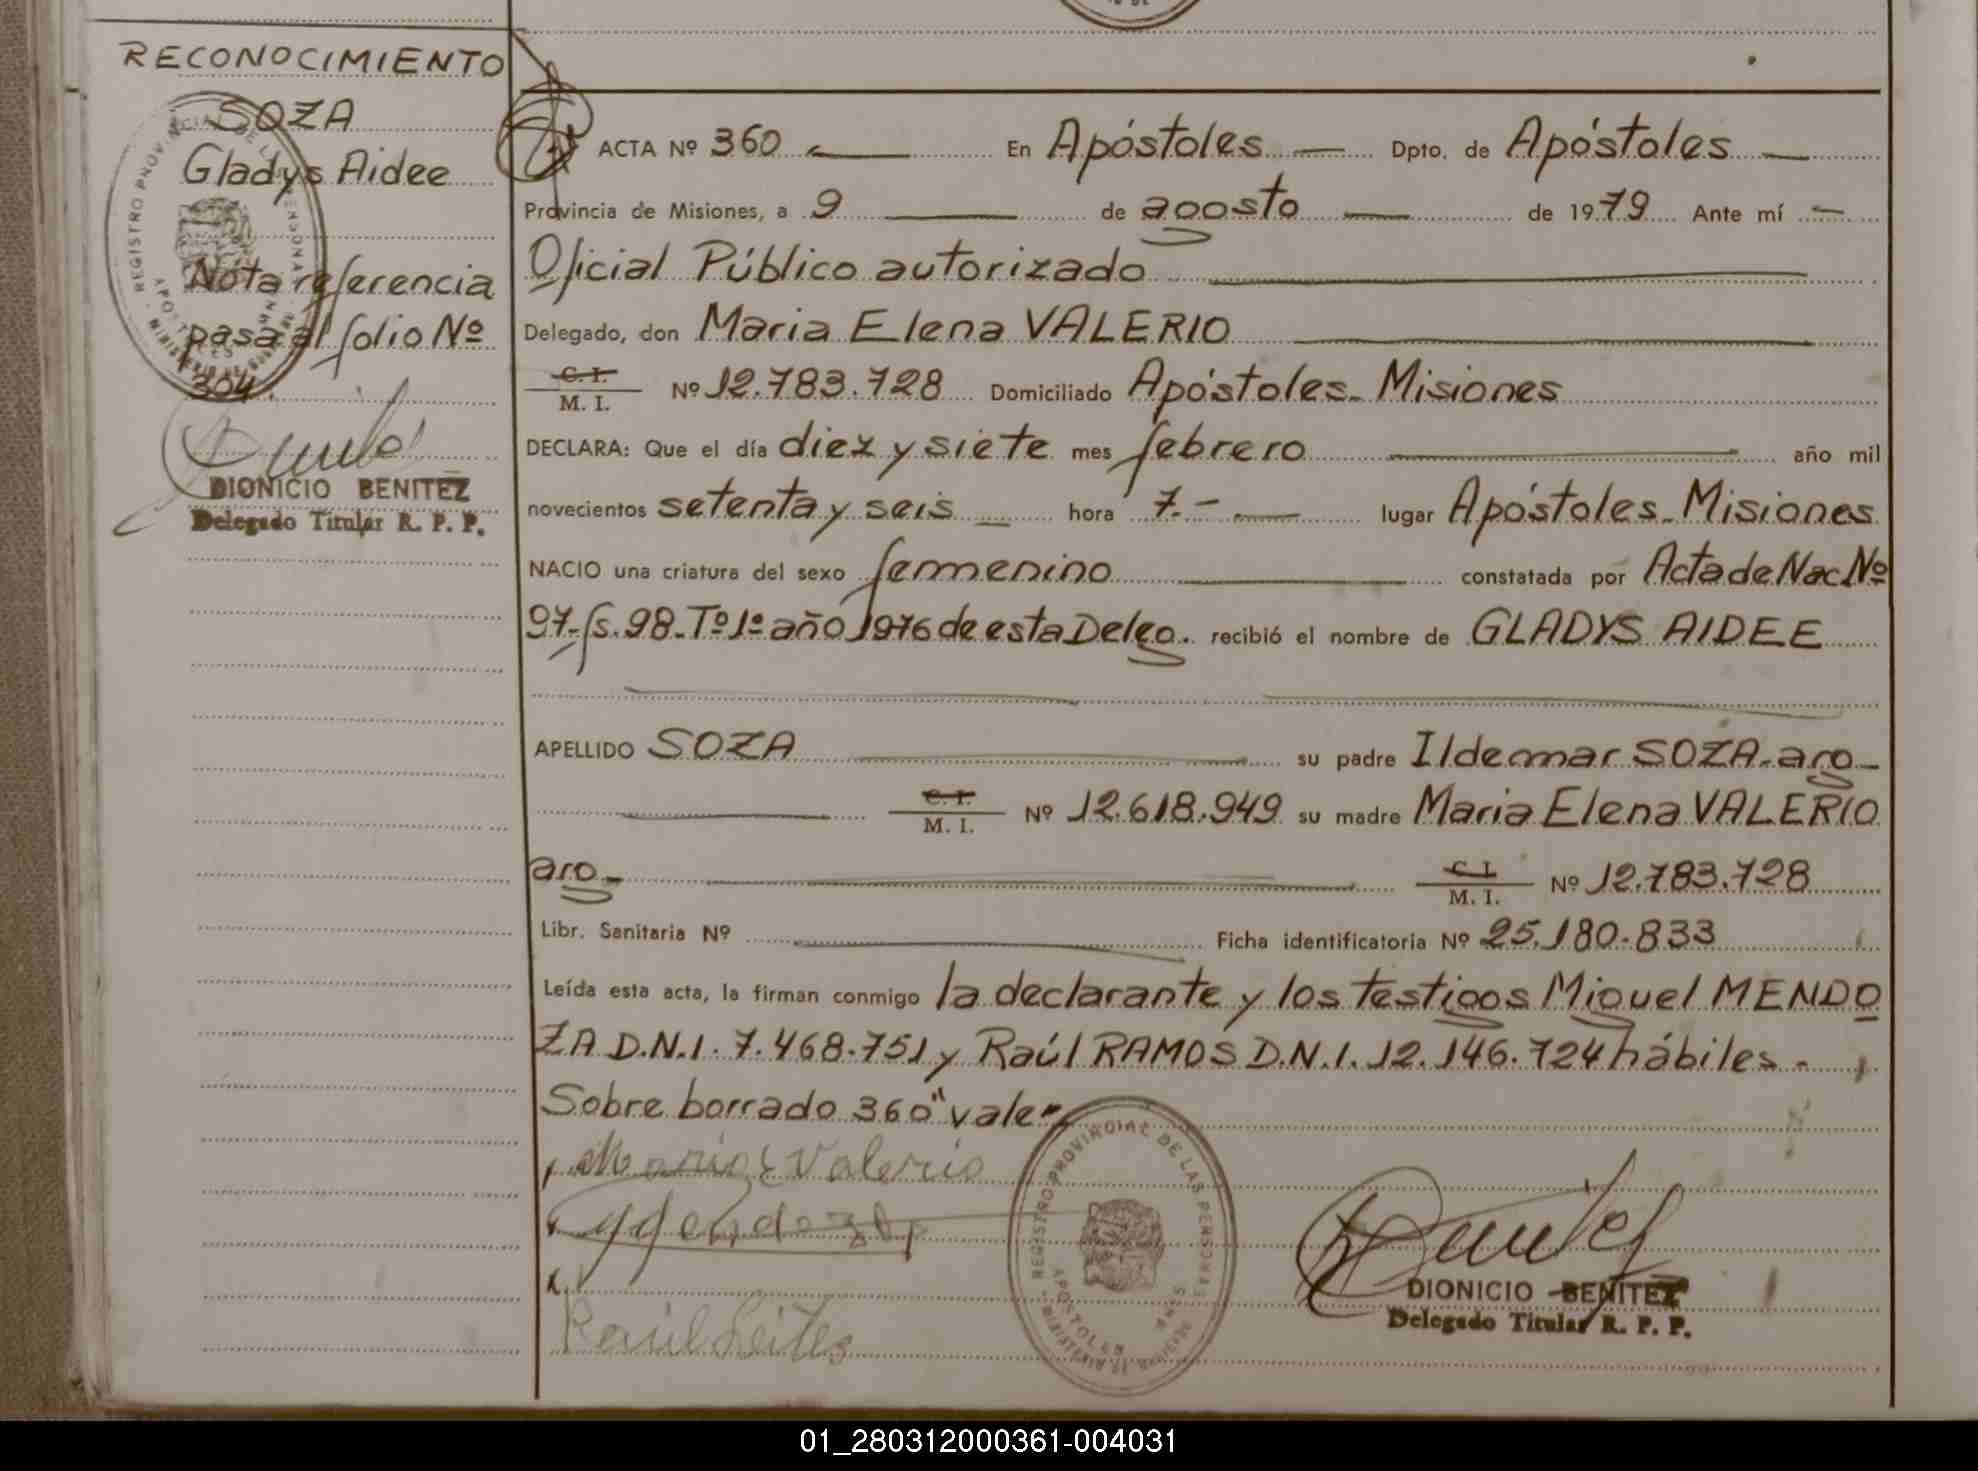 RECONOCIMIENTO
SOZA
Gladys Aidee
Nota referencia
pasa al folio Nº
304.
DIONICIO BENITEZ
Delegado Titular R. P. P.
ACTA Nº 360 En Apóstoles Dpto. de Apóstoles
Provincia de Misiones, a 9 de agosto de 1979 Ante mí
Oficial Público autorizado
Delegado, don Maria Elena VALERIO
C. I. / M. I. Nº 12.783.728 Domiciliado Apóstoles-Misiones
DECLARA: Que el día diez y siete mes febrero año mil
novecientos setenta y seis hora 7.- lugar Apóstoles-Misiones
NACIO una criatura del sexo femenino constatada por Acta de Nac. Nº
97-fs.98-Tº1º año 1976 de esta Deleg. recibió el nombre de GLADYS AIDEE
APELLIDO SOZA su padre Ildemar SOZA-arg-
C. I. / M. I. Nº 12.618.949 su madre Maria Elena VALERIO
arg- C. I. / M. I. Nº 12.783.728
Libr. Sanitaria Nº Ficha identificatoria Nº 25.180.833
Leída esta acta, la firman conmigo la declarante y los testigos Miguel MENDO
ZA D.N.I. 7.468.751 y Raúl RAMOS D.N.I. 12.146.724 hábiles-
Sobre borrado 360" vale-
Maria E Valerio
REGISTRO PROVINCIAL DE LAS PERSONAS
APOSTOLES
DIONICIO BENITEZ
Delegado Titular R. P. P.
01_280312000361-004031